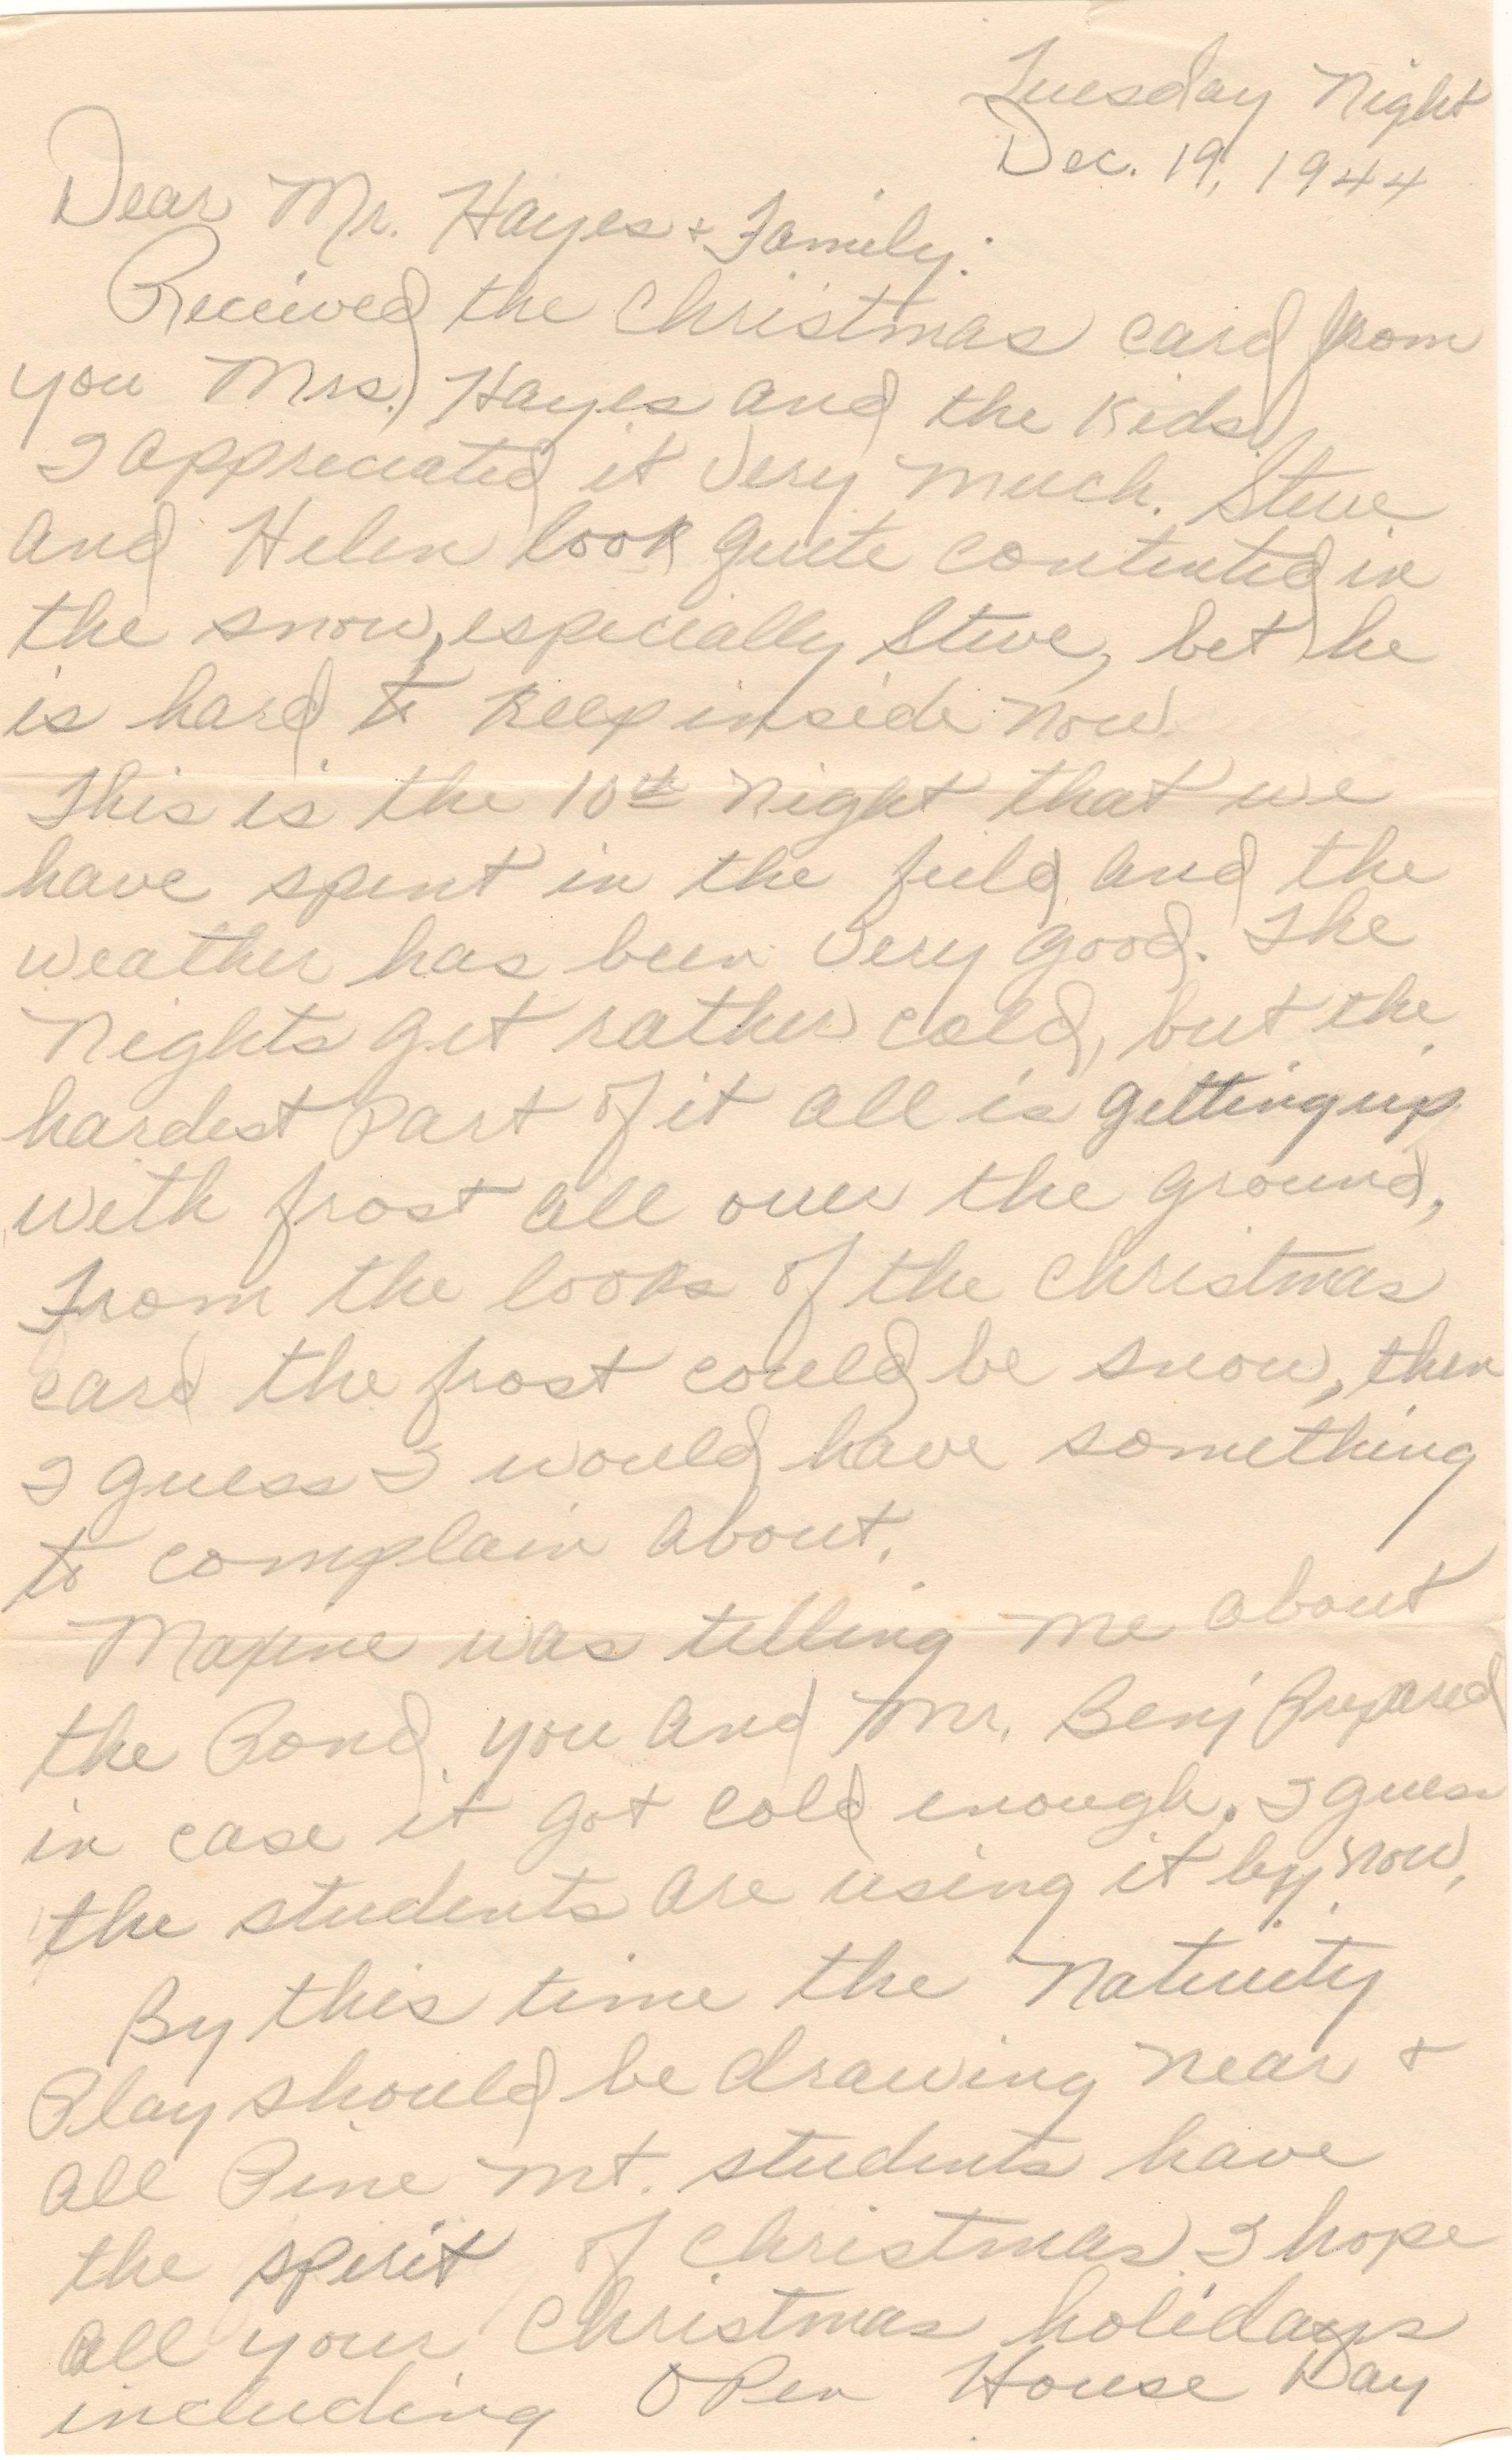 Tuesday Night
Dec. 19, 1944
Dear Mr. Hayes + Family:
Received the Christmas card from
you Mrs. Hayes and the Kids,
I appreciated it very much. Steve
and Helen look quite contented in
the snow, especially Steve, bet he
is hard to keep inside now.
This is the 10th night that we
have spent in the field and the
weather has been very good. The
Nights get rather cold, but the
hardest part of it all is getting up
with frost all over the ground,
From the looks of the Christmas
card the frost could be snow, then
I guess I would have something
to complain about.
Maxine was telling me about
the Pond you and Mr. Benj Prepared
in case it got cold enough. I guess
the students are using it by now,
By this time the Nativity
Play should be drawing near +
all Pine Mt. students have
the spirit of Christmas I hope
all your Christmas holidays
including Open House Day